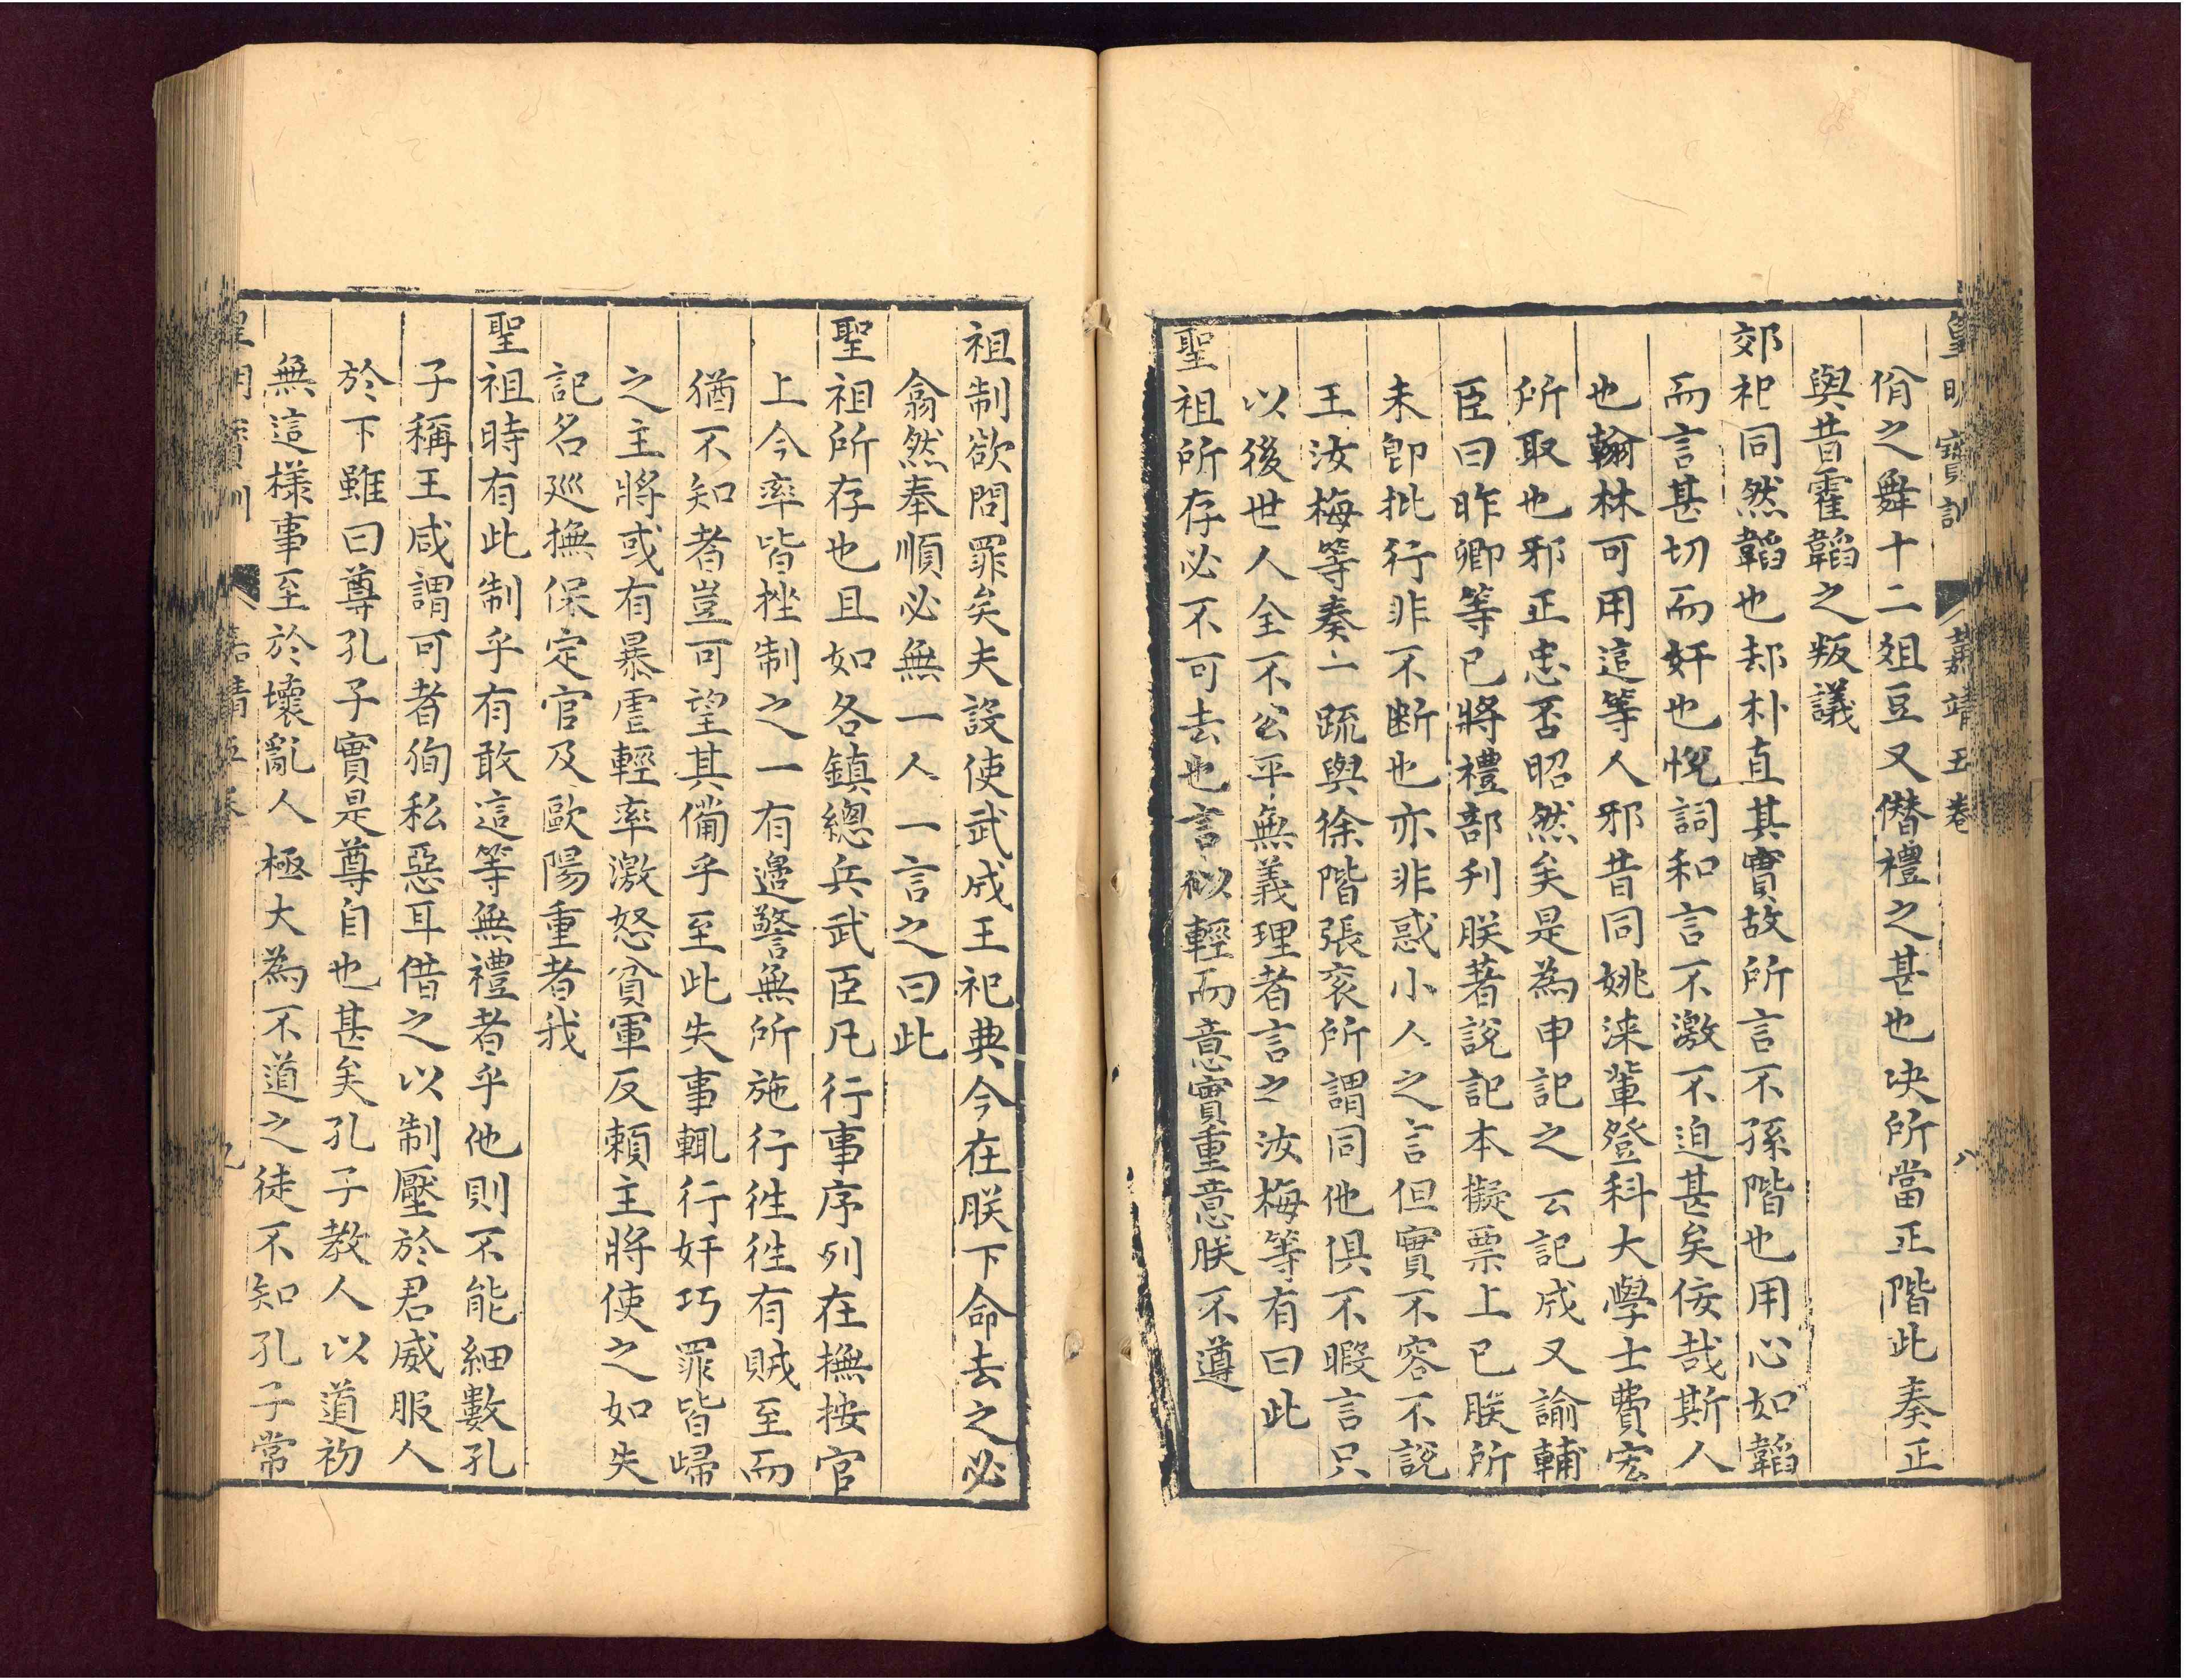 皇明寶訓 嘉靖五卷 八
佾之舞十二俎豆又僭禮之甚也决所當正階此奏正
與昔霍韜之叛議
郊祀同然韜也却朴直其實故所言不孫階也用心如韜
而言甚切而奸也悅詞和言不激不迫甚矣佞哉斯人
也翰林可用這等人邪昔同姚淶輩登科大學士費宏
所取也邪正忠否昭然矣是為申記之云記成又諭輔
臣曰昨卿等已將禮部刋朕著說記本擬票上已朕所
未卽批行非不断也亦非惑小人之言但實不容不說
王汝梅等奏一疏與徐階張衮所謂同他俱不暇言只
以後世人全不公平無義理者言之汝梅等有曰此
聖祖所存必不可去也言似輕而意實重意朕不遵
祖制欲問罪矣夫設使武成王祀典今在朕下命去之必
翕然奉順必無一人一言之曰此
聖祖所存也且如各鎮總兵武臣凡行事序列在撫按官
上今率皆挫制之一有邉警無所施行徃徃有賊至而
猶不知者豈可望其備乎至此失事輒行奸巧罪皆歸
之主將或有暴虐輕率激怒貧軍反頼主將使之如失
記名廵撫保定官及歐陽重者我
聖祖時有此制乎有敢這等無禮者乎他則不能細數孔
子稱王咸謂可者徇私惡耳借之以制壓於君威服人
於下雖曰尊孔子實是尊自也甚矣孔子教人以道初
無這樣事至於壞亂人極大為不道之徒不知孔子常
皇明寶訓 嘉靖五卷 九